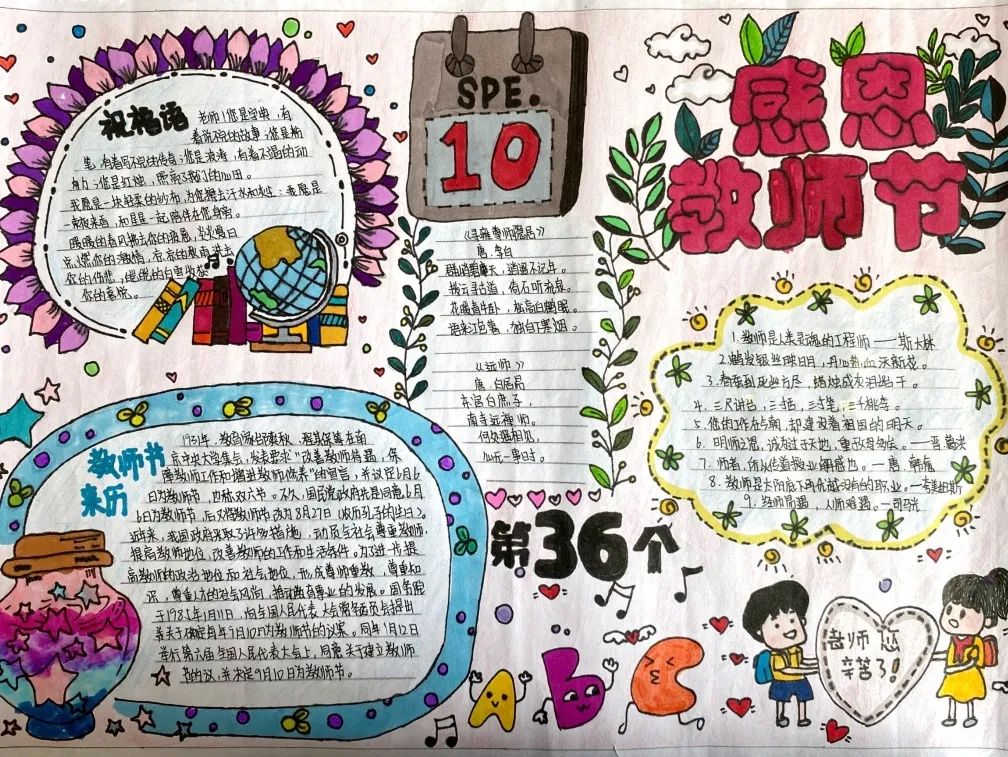 祝福语
老师！您是字典，有
着说不完的故事；您是粉
笔，有着写不完的传奇；您是浪涛，有着不竭的动
力；您是红烛，照亮了我们的心田。
我愿是一块轻柔的纱布，为您擦去汗水和
；我愿是
一
，和星星一起陪伴在您身旁。
暖暖的春风拂去你的疲惫，炎炎夏日
点燃你的激情，
的秋雨洗去
你的伤悲，
的白雪收获
你的喜悦。
SPE.
10
感恩
教师节
《寻雍尊师隐居》
唐.李白
群峭碧摩天，逍遥不记年。
拨云寻古道，倚石听流泉。
花暖青牛卧，松高白鹤眠。
语来江色暮，独自下寒烟。
《远师》
唐.白居易
东宫白庶子，
南寺远禅师。
何处遥相见，
心无一事时。
1.教师是人类灵魂的工程师——斯大林
2.
银丝映日月，丹心热血沃新花。
3.春蚕到死丝方尽，蜡炬成灰泪始干。
4.三尺讲台，三
，三寸笔，三千桃李。
5.您的工作在今朝，却建设着祖国的明天。
6.明师之恩，诚为过于天地，重于父母
。——晋 葛洪
7.师者，所以传道授业解惑也。—唐.韩愈
8.教师是太阳底下再优越没有的职业。—夸美纽斯
9.经师易遇，人师难遇。—司马光
教师节
来历
1931年，教育家邰爽秋、程其保等在南
京中央大学集会，发表要求“改善教师待遇，保
障教师工作和增进教师修养”的宣言，并议定6月6
日为教师节，也称双六节。不久，国民党政府先是同意6月
6日为教师节，后又将教师节改为8月27日（彼历孔子的生日）。
近年来，我国政府采取了许多措施，动员全社会尊重教师，
提高教师地位，改善教师的工作和生活条件。为了进一步提
高教师的政治地位和社会地位，形成尊师重教，尊重知
识，尊重人才的社会风尚，推动教育事业的发展。国务院
于1985年1月11日，向全国人民代表大会常务委员会提出
关于确定每年9月10日为教师节的议案。同年1月12日
举行第六届全国人民代表大会上，同意关于建立教师
节的议，并决定9月10日为教师节。
第36个
A b C
老师 您
辛苦了！